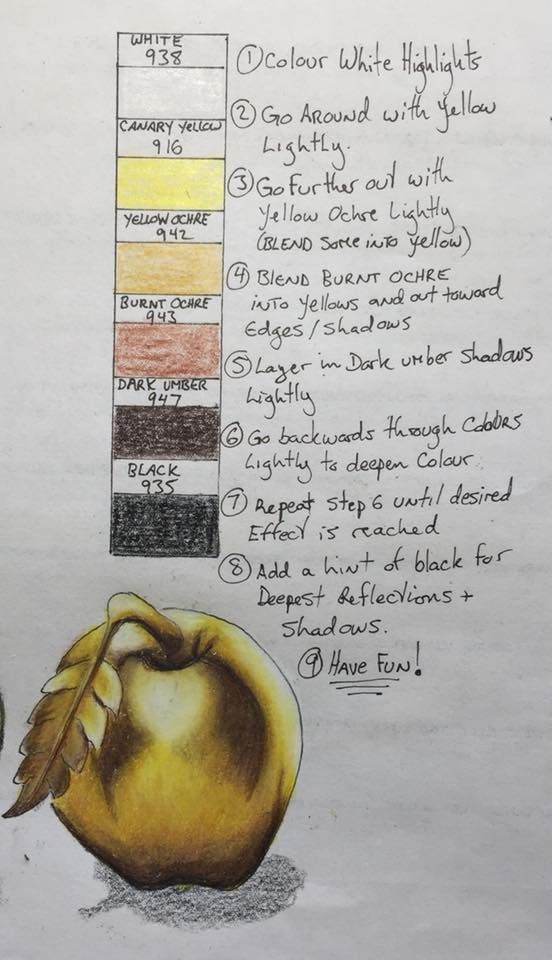 WHITE
938
CANARY YELLOW
916
YELLOW OCHRE
942
BURNT OCHRE
943
DARK UMBER
947
BLACK
935
① Colour White Highlights
② Go Around with Yellow
Lightly.
③ Go Further out with
Yellow Ochre Lightly
(BLEND Some into Yellow)
④ BLEND BURNT OCHRE
into Yellows and out toward
Edges/Shadows
⑤ Layer in Dark umber Shadows
Lightly
⑥ Go backwards through Colours
Lightly to deepen Colour.
⑦ Repeat Step 6 until desired
Effect is reached
⑧ Add a hint of black for
Deepest Reflections +
Shadows.
⑨ HAVE FUN!